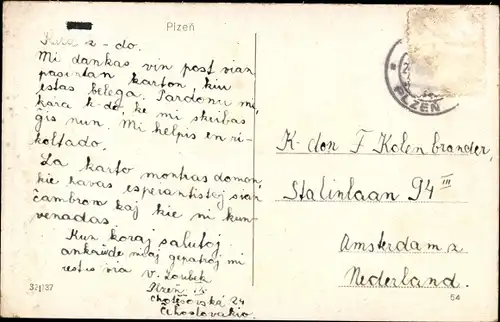 Plzeň
Kara z-do.
Mi dankas vin post vian
pasintan karton, kiu
estas belega. Pardonu mi,
kara k-do, ke mi skribas
ĝis nun. Mi helpis en ri-
koltado.
La karto montras domon,
kie havas esperantistoj sian
ĉambron kaj kie ni kun-
venadas.
Kun koraj salutoj
ankaŭ de miaj gepatroj mi
restas via V. Loubek
Plzeň
Chotěšovská 24
Ĉehoslovakio
PLZEŇ
K-don F Kolenbrander
Stalinlaan 94 III
Amsterdam z
Nederland.
54